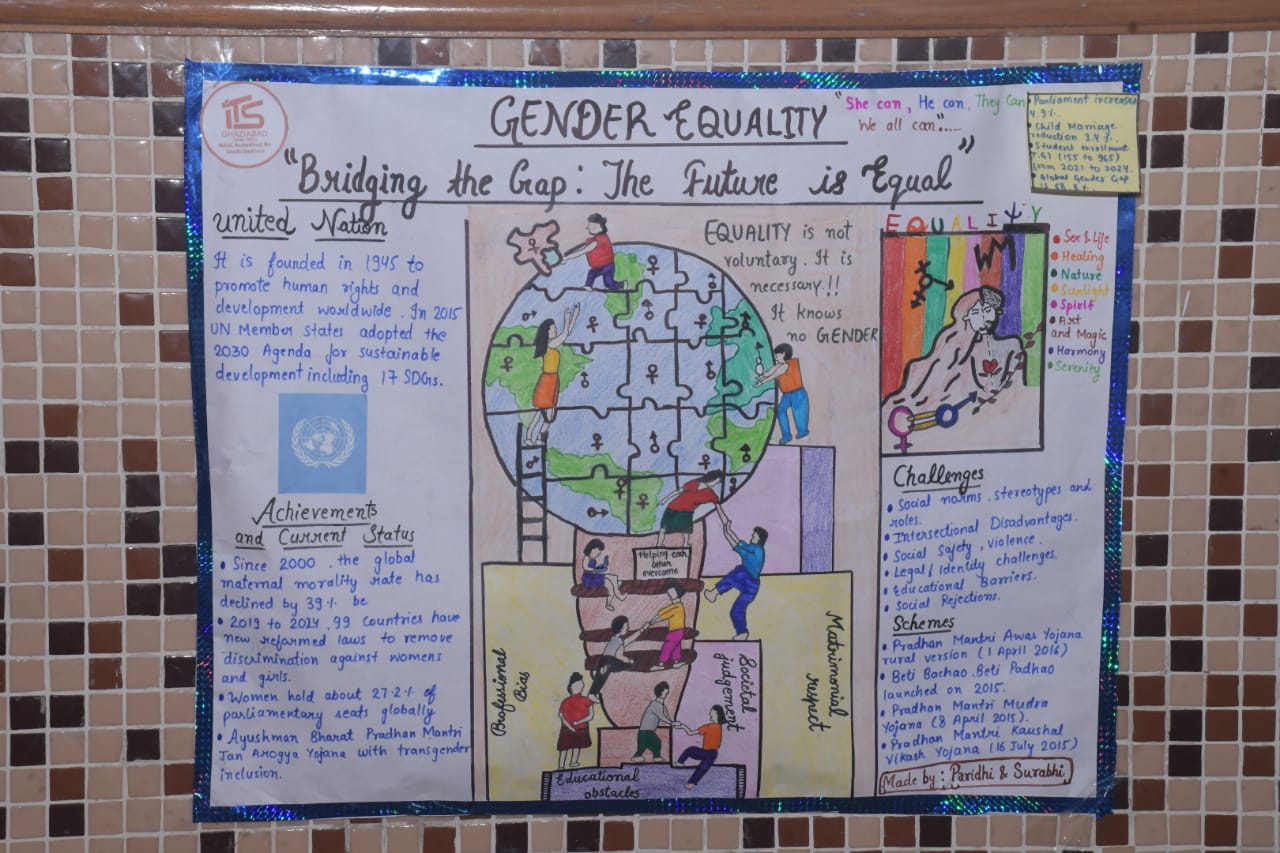 ITS
GHAZIABAD
GENDER EQUALITY
"She can, He can, They Can
We all can"....
"Bridging the Gap: The Future is Equal"
• Parliament increases
4.9%.
• Child Marriage
reduction 3.4%.
• Student enrollment
T.G) (155 to 965)
from 2021 to 2024.
• Global Gender Gap
United Nation
It is founded in 1945 to
promote human rights and
development worldwide. In 2015
UN Member states adopted the
2030 Agenda for sustainable
development including 17 SDGs.
Achievements
and Current Status
• Since 2000, the global
maternal morality rate has
declined by 39% be
• 2019 to 2024, 99 countries have
new reformed laws to remove
discrimination against womens
and girls.
• Women hold about 27.2% of
parliamentary seats globally
• Ayushman Bharat Pradhan Mantri
Jan Arogya Yojana with transgender
inclusion.
EQUALITY is not
voluntary. It is
necessary.!!
It knows
no GENDER
Helping each
other
overcome
Professional
Bias
Societal
judgement
Matrimonial
respect
Educational
obstacles
EQUALITY
WM
• Sex & Life
• Healing
• Nature
• Sunlight
• Spirit
• Art
and Magic
• Harmony
• Serenity
Challenges
• Social norms, stereotypes and
roles.
• Intersectional Disadvantages.
• Social Safety, violence.
• Legal/Identity challenges.
• Educational Barriers.
• Social Rejections.
Schemes
• Pradhan Mantri Awas Yojana
rural version (1 April 2016)
• Beti Bachao, Beti Padhao
launched on 2015.
• Pradhan Mantri Mudra
Yojana (8 April 2015).
• Pradhan Mantri Kaushal
Vikash Yojana (16 July 2015)
Made by: Paridhi & Surabhi